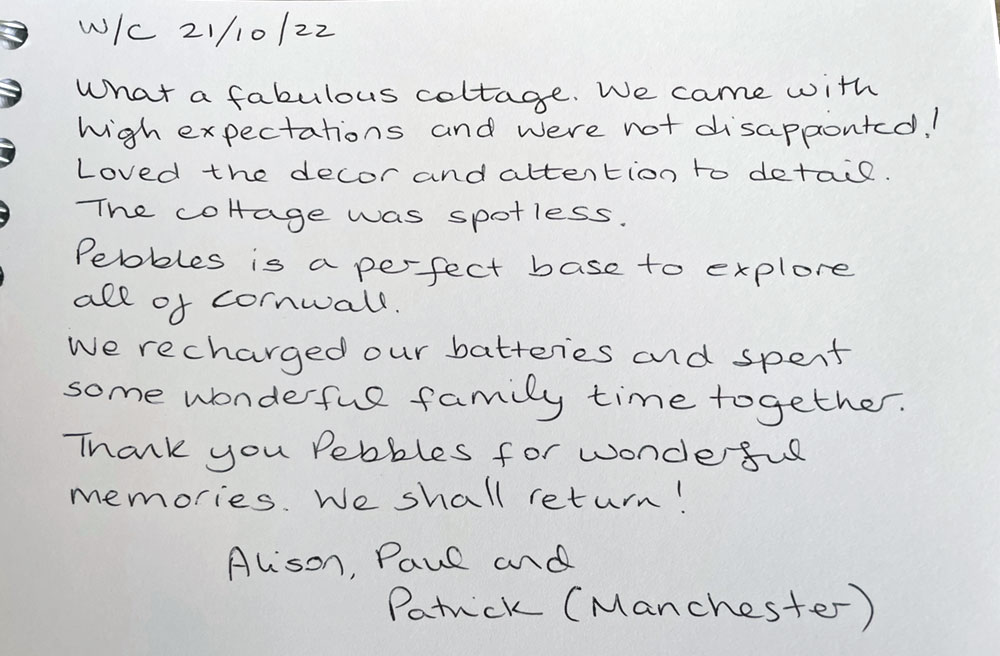 W/C 21/10/22
What a fabulous cottage. We came with
high expectations and were not disappionted!
Loved the decor and attention to detail.
The cottage was spotless.
Pebbles is a perfect base to explore
all of cornwall.
We recharged our batteries and spent
some wonderful family time together.
Thank you Pebbles for wonderful
memories. We shall return!
Alison, Paul and
Patrick (Manchester)